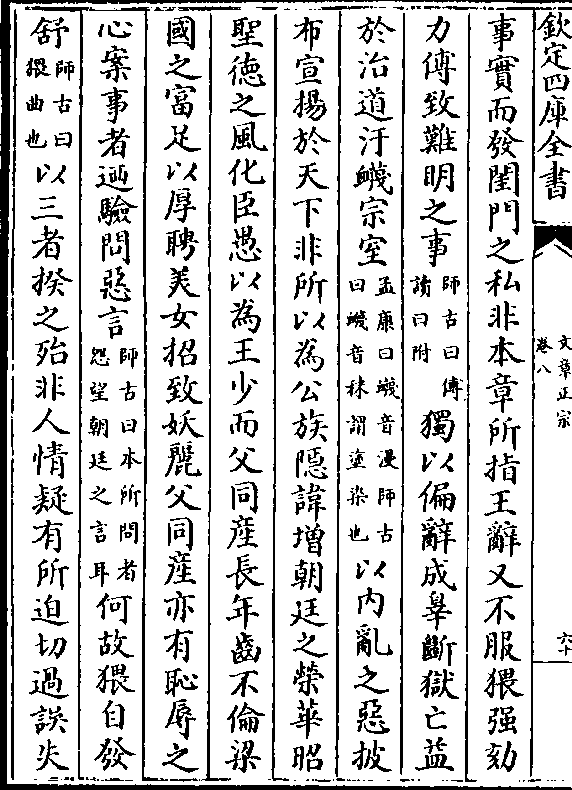 欽定四庫全書
文章正宗
卷八
六十
事實而發閨門之私非本章所指王辭又不服猥强劾
力傅致難明之事師古曰傅讀曰附獨以偏辭成辠斷獄亡益
於治道汙衊宗室孟康曰衊音漫師古曰衊音秣謂塗染也以内亂之惡披
布宣揚於天下非所以為公族隠諱增朝廷之榮華昭
聖徳之風化臣愚以為王少而父同産長年齒不倫梁
國之富足以厚聘美女招致妖麗父同産亦有恥辱之
心案事者廼驗問惡言師古曰本所問者怨望朝廷之言耳何故猥自發
舒師古曰猥曲也以三者揆之殆非人情疑有所迫切過誤失